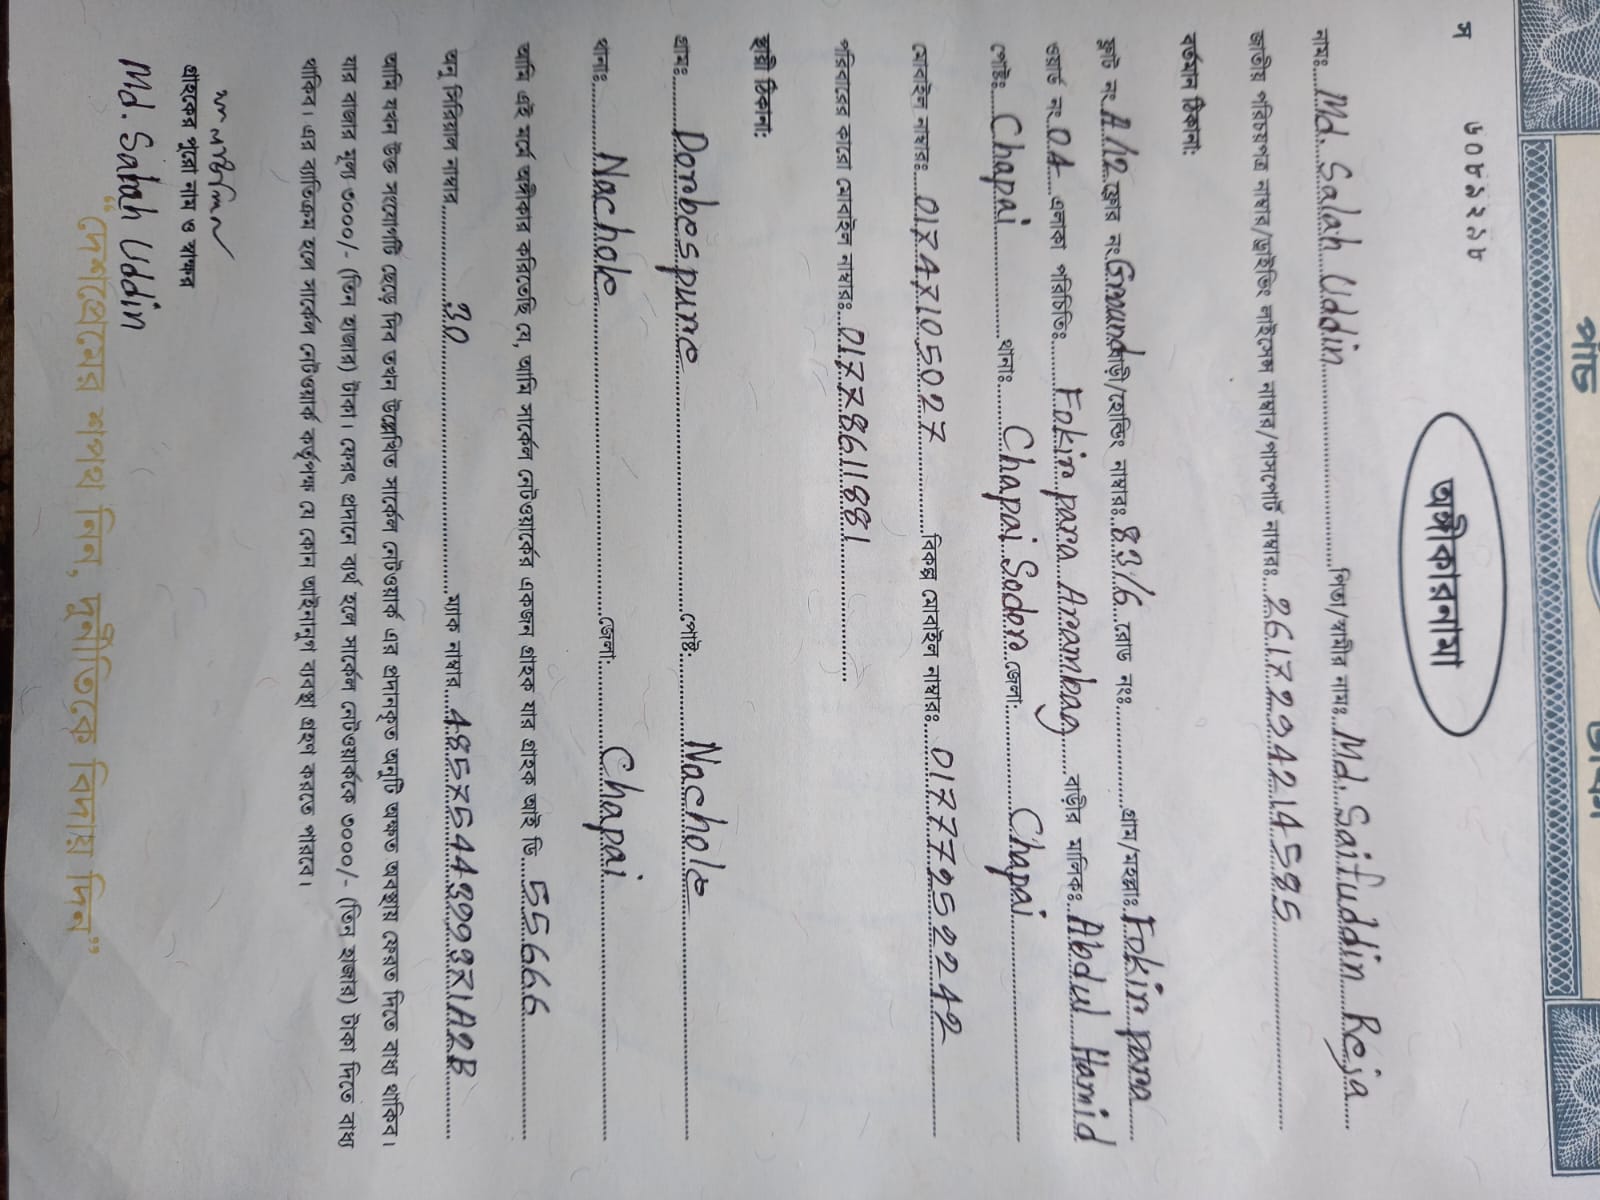 পাঁচ
স ৬০৮৯২৯৮
অঙ্গীকারনামা
নাম: Md. Salah Uddin পিতা/স্বামীর নামঃ Md. Saifuddin Reja
জাতীয় পরিচয়পত্র নাম্বার/ড্রাইভিং লাইসেন্স নাম্বার/পাসপোর্ট নাম্বারঃ 2617294214585
বর্তমান ঠিকানা:
ফ্লাট নং A/12 ফ্লোর নং Ground বাড়ী/হোল্ডিং নাম্বারঃ 83/6 রোড নংঃ গ্রাম/মহল্লাঃ Fokir para
ওয়ার্ড নং 04 এলাকা পরিচিতিঃ Fokir para Arambag বাড়ীর মালিকঃ Abdul Hamid
পোষ্টঃ Chapai থানাঃ Chapai Sador জেলা: Chapai
মোবাইল নাম্বারঃ 01747105027 বিকল্প মোবাইল নাম্বারঃ 01777952242
পরিবারের কারো মোবাইল নাম্বারঃ 01778611881
স্থায়ী ঠিকানা:
গ্রামঃ Dorbespure পোষ্ট: Nachole
থানাঃ Nachole জেলা: Chapai
আমি এই মর্মে অঙ্গীকার করিতেছি যে, আমি সার্কেল নেটওয়ার্কের একজন গ্রাহক যার গ্রাহক আই ডি 55666
অনু সিরিয়াল নাম্বার 30 ম্যাক নাম্বার
আমি যখন উক্ত সংযোগটি ছেড়ে দিব তখন উল্লেখিত সার্কেল নেটওয়ার্ক এর প্রদানকৃত অনুটি অক্ষত অবস্থায় ফেরত দিতে বাধ্য থাকিব।
যার বাজার মূল্য ৩০০০/- (তিন হাজার) টাকা। ফেরৎ প্রদানে ব্যর্থ হলে সার্কেল নেটওয়ার্ককে ৩০০০/- (তিন হাজার) টাকা দিতে বাধ্য
থাকিব। এর ব্যাতিক্রম হলে সার্কেল নেটওয়ার্ক কর্তৃপক্ষ যে কোন আইনানুগ ব্যবস্থা গ্রহণ করতে পারবে।
গ্রাহকের পুরো নাম ও স্বাক্ষর
Md. Salah Uddin
“দেশপ্রেমের শপথ নিন, দুর্নীতিকে বিদায় দিন”